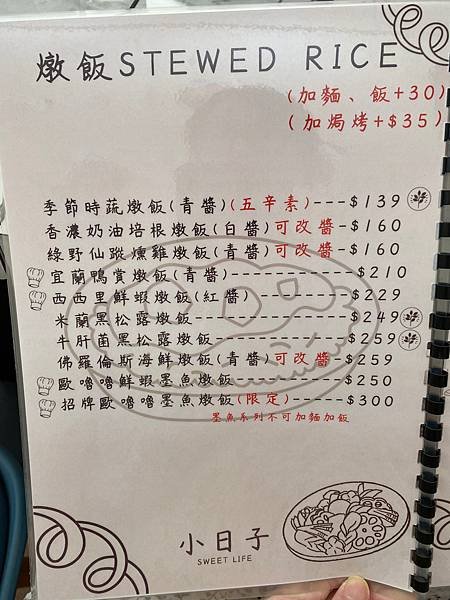 燉飯STEWED RICE
(加麵、飯+30)
(加焗烤+$35)
季節時蔬燉飯(青醬)(五辛素)---$139
香濃奶油培根燉飯(白醬)可改醬-$160
綠野仙蹤燻雞燉飯(青醬)可改醬-$160
宜蘭鴨賞燉飯(青醬)------------$210
西西里鮮蝦燉飯(紅醬)--------$229
米蘭黑松露燉飯-------------$249
牛肝菌黑松露燉飯-----------$259
佛羅倫斯海鮮燉飯(青醬)可改醬-$259
歐嚕嚕鮮蝦墨魚燉飯---------$250
招牌歐嚕嚕墨魚燉飯(限定)----$300
墨魚系列不可加麵加飯
小日子
SWEET LIFE